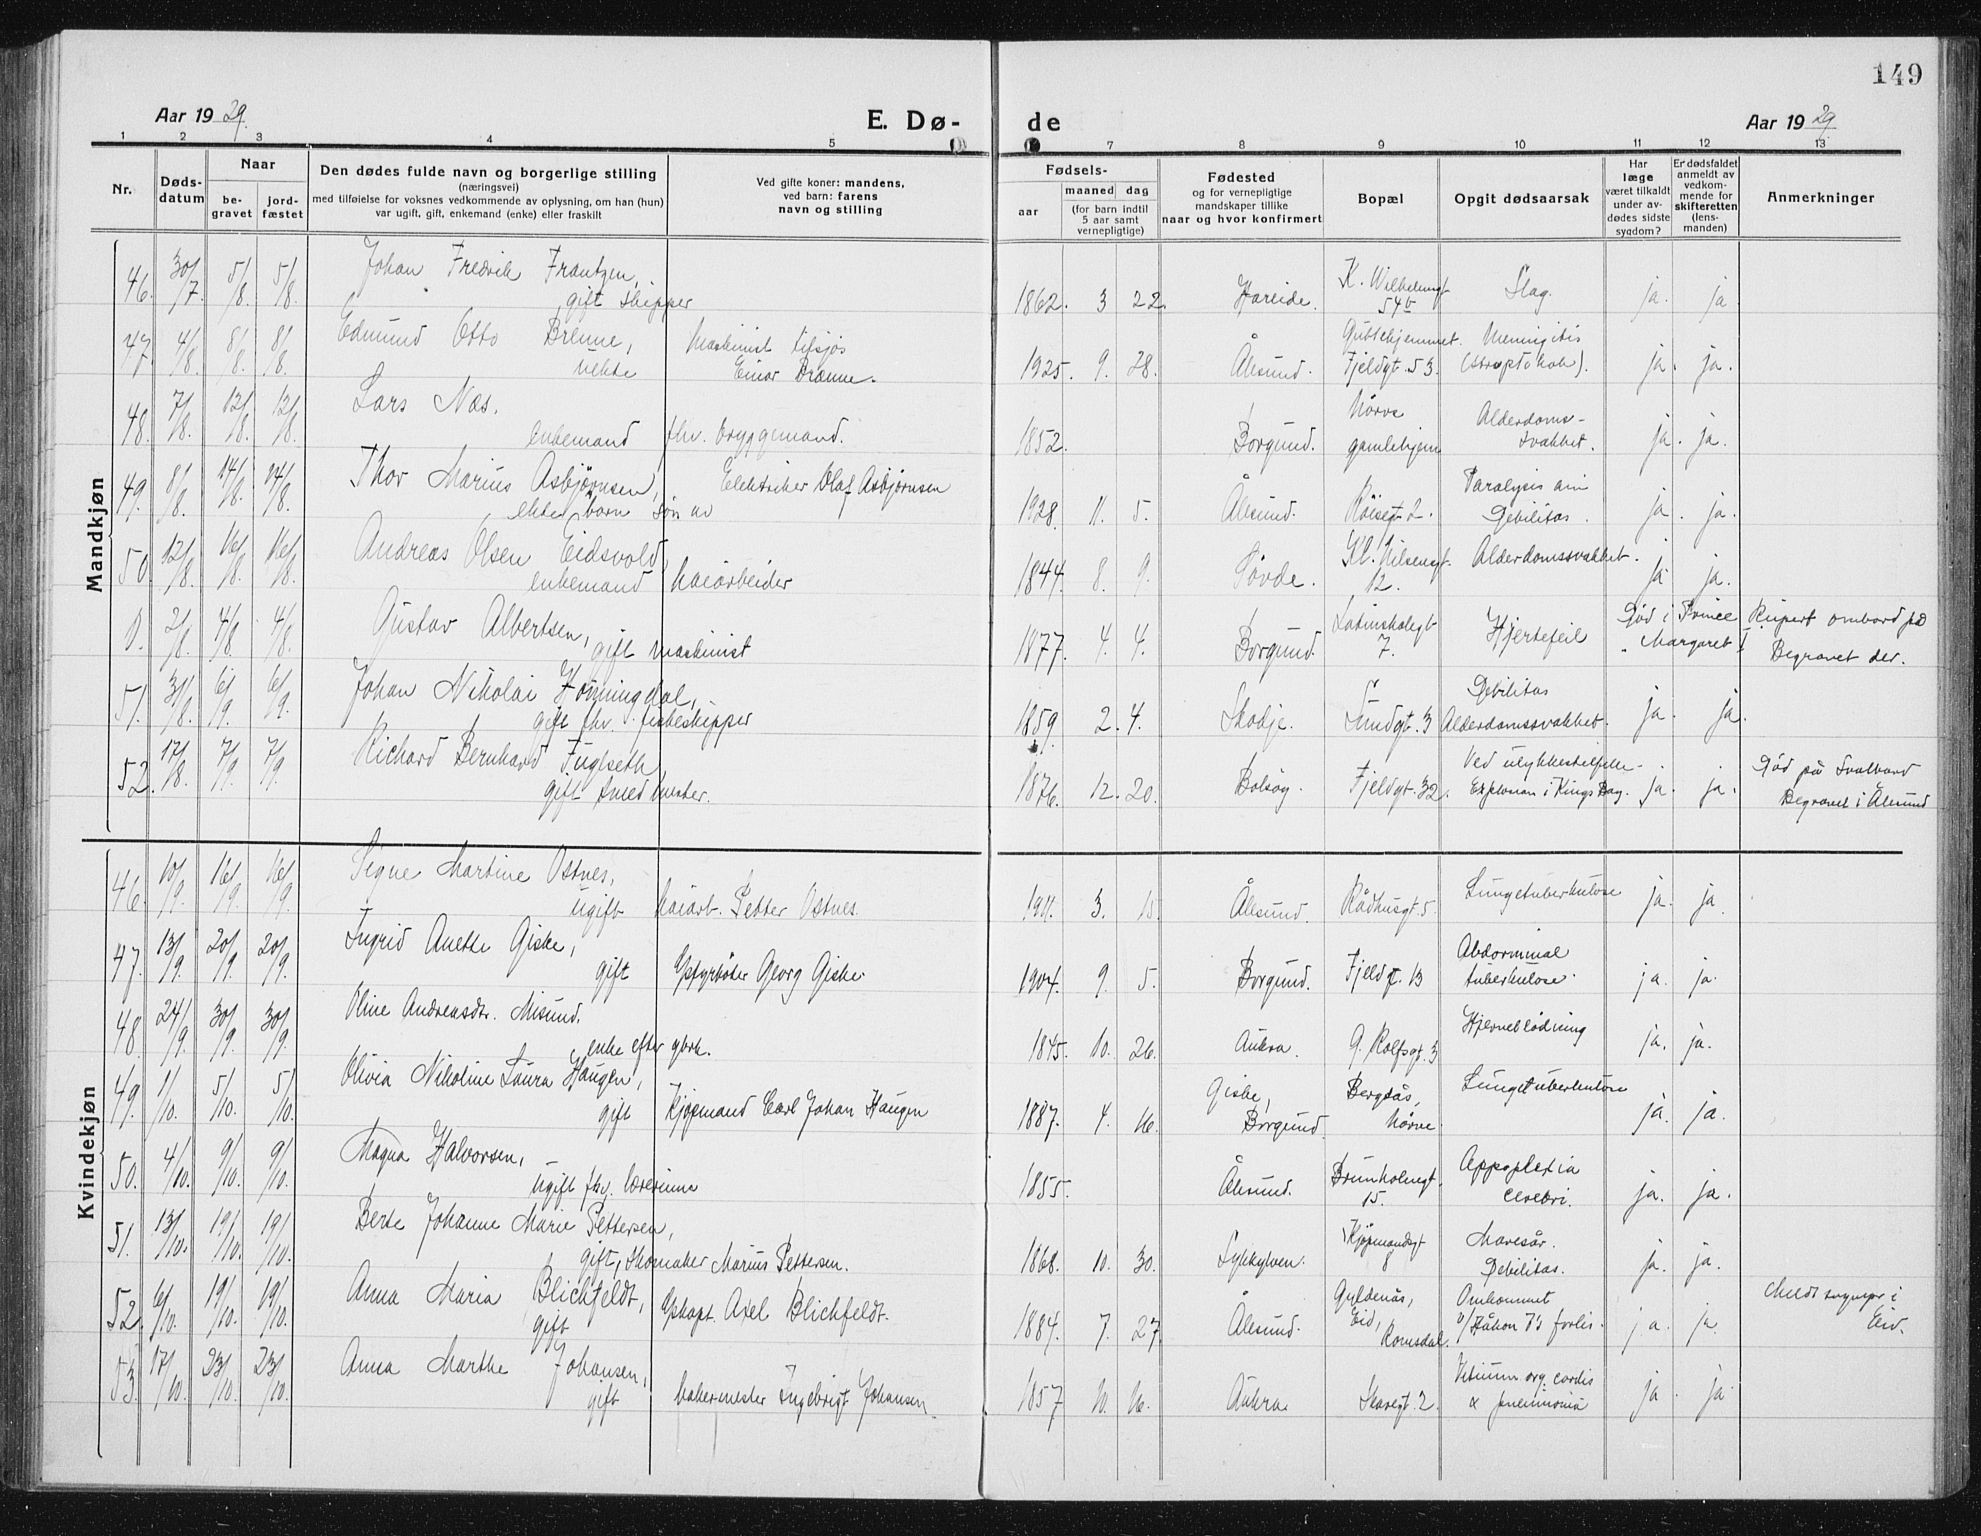 149
Aar 1929.
E. Dø-
de
Aar 1929
1 2 3 4 5 7 8 9 10 11 12 13
Nr.
Døds-
datum
Naar
be-
gravet
jord-
fæstet
Den dødes fulde navn og borgerlige stilling
(næringsvei)
med tilføielse for voksnes vedkommende av oplysning, om han (hun)
var ugift, gift, enkemand (enke) eller fraskilt
Ved gifte koner: mandens,
ved barn: farens
navn og stilling
Fødsels-
aar
maaned dag
(for barn indtil
5 aar samt
vernepligtige)
Fødested
og for vernepligtige
mandskaper tillike
naar og hvor konfirmert
Bopæl
Opgit dødsaarsak
Har
læge
været tilkaldt
under av-
dødes sidste
sygdom?
Er dødsfaldet
anmeldt av
vedkom-
mende for
skifteretten
(lens-
manden)
Anmerkninger
Mandkjøn
46. 30/7. 5/8. 5/8. Johan Fredrik Frantzen,
gift skipper
1862. 3 22. Hareide. K. Wilhelmsgt
54b Slag. ja. ja
47. 4/8. 8/8. 8/8. Edmund Otto Brenne,
uekte
Maskinist tilsjøs
Einar Brenne.
1925. 9. 28. Ålesund. Guttehjemmet.
Fjeldgt. 53. Meningitis
(streptokok). ja. ja.
48. 7/8. 12/8. 12/8. Lars Næs.
enkemand fhv. bryggemand.
1852. Borgund. Nørve
gamlehjem Alderdoms-
svakhet. ja. ja.
49. 8/8. 14/8. 14/8. Thor Marius Asbjørnsen,
ekte barn søn av
Elektriker Olaf Asbjørnsen
1928. 11. 5. Ålesund. Røisegt 2. Paralysis
Debilitas. ja. ja.
50. 12/8. 16/8. 16/8. Andreas Olsen Eidsvold,
enkemand kaiarbeider
1844. 8. 9. Søvde. Kl. Nilsensgt.
12. Alderdomssvakhet. ja ja.
0. 2/8. 4/8. 4/8. Gustav Albertsen,
gift maskinist
1877. 4. 4. Borgund. Latinskolegt
7. Hjertefeil Død i Prince Rupert ombord på
Margaret I Begravet der.
51. 31/8. 6/9. 6/9. Johan Nikolai Hørningdal,
gift fhv. fiskeskipper
1859. 2. 4. Skodje. Sundgt. 3 Debilitas
Alderdomssvakhet. ja. ja.
52. 17/8. 7/9. 7/9. Richard Bernhard Fuglseth
gift smedmester.
1876. 12. 20. Bolsøy. Fjeldgt. 32. Ved ulykkestilfelle-
Explosion i Kings Bay. ja. ja. Død på Svalbard
Begravet i Ålesund
Kvindekjøn
46. 10/9. 16/9. 16/9. Signe Martine Ostnes,
ugift kaiarb. Petter Ostnes.
1911. 3. 15. Ålesund. Rådhusgt. 5. Lungetuberkulose ja. ja.
47. 13/9. 20/9. 20/9. Ingrid Anette Giske,
gift Georg Giske.
1904. 9. 5. Borgund. Fjeldgt. 13 Abdominal
tuberkulose. ja. ja.
48. 24/9. 30/9. 30/9. Oline Andreasdtr. Misund.
enke efter gbrk.
1845. 10. 26. Aukra. G. Rolfsgt. 3 Hjerneblødning ja. ja.
49. 1/10. 5/10. 5/10. Olivia Nikoline Laura Haugen,
gift Kjøpmand Carl Johan Haugen
1887. 4. 16. Giske,
Borgund. Bergsås,
Nørve. Lungetuberkulose ja. ja.
50. 4/10. 9/10. 9/10. Magna Halvorsen,
ugift fhv. lærerinne
1855. Ålesund. Brunholmgt.
15. Appoplexia
cerebri. ja. ja.
51. 13/10. 19/10. 19/10. Berte Johanne Marie Pettersen,
gift, Skomaker Marius Pettersen.
1868. 10. 30. Sykkylven. Kjøpmandsgt
8 Mavesår.
Debilitas. ja. ja.
52. 6/10. 19/10. 19/10. Anna Maria Blichfeldt,
gift Axel Blichfeldt.
1884. 7. 27 Ålesund. Gyldenås,
Eid,
Romsdal. Omkommet
v/Håkon 7's forlis. ja. ja. Meldt sognepr i
Eid.
53. 17/10. 23/10. 23/10. Anna Marthe Johansen,
gift bakermester Ingebrigt Johansen.
1857 10. 16. Aukra. Skaregt. 2. Vitium org. cordis
& pneumonia ja. ja.